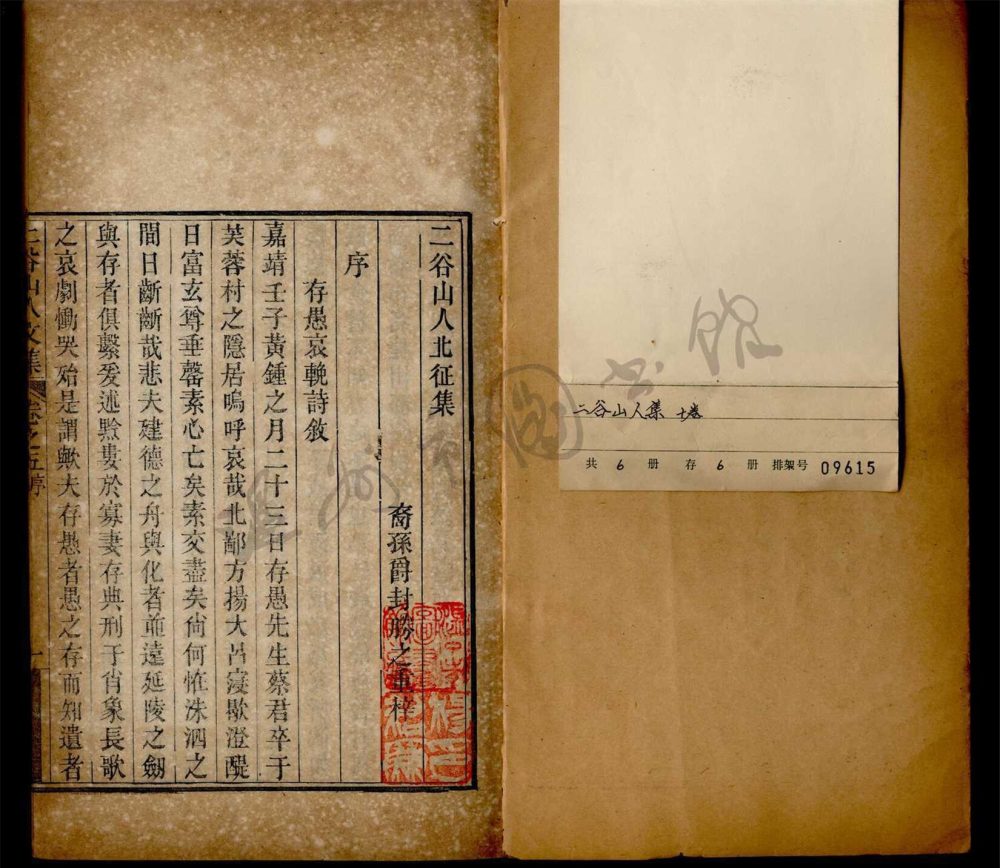 二谷山人北征集
裔孫爵封勝之重梓
序
存愚哀輓詩敘
嘉靖壬子黃鍾之月二十三日存愚先生蔡君卒于
芙蓉村之隱居嗚呼哀哉北鄙方揚大呂寖歇澄醍
日富玄尊垂罄素心亡矣素交盡矣尙何惟洙泗之
間日齗齗哉悲夫建德之舟與化者並遠延陵之劒
與存者俱繫爰述黔婁於寡妻存典刑于肖象長歌
之哀劇慟哭殆是謂歟夫存愚者愚之存而知遺者
二谷山人文集 卷之五序 一
二谷山人集 十卷
共 6 册 存 6 册 排架号 09615